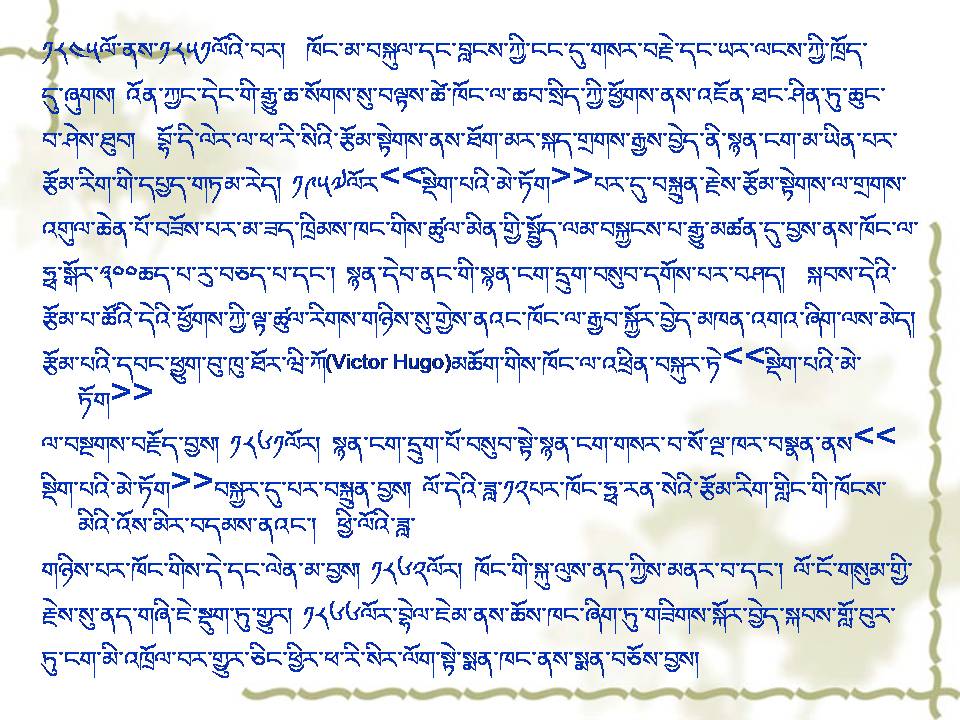 ༡༨༤༥ལོ་ནས་༡༨༥༡ལོའི་བར། ཁོང་མ་བསྐུལ་དང་བླངས་ཀྱི་ངང་དུ་གསར་བརྗེ་དང་ཡར་ལངས་ཀྱི་ཁྲོད་
དུ་ཞུགས། འོན་ཀྱང་དེང་གི་རྒྱུ་ཆ་སོགས་སུ་བལྟས་ཚེ་ཁོང་ལ་ཆབ་སྲིད་ཀྱི་ཕྱོགས་ནས་འཇོན་ཐང་ཤིན་ཏུ་ཆུང་
བ་ཤེས་ཐུབ། བྷོ་དི་ལེར་ལ་ཕ་རི་སིའི་རྩོམ་སྟེགས་ནས་ཐོག་མར་སྐད་གྲགས་རྒྱས་བྱེད་ནི་སྙན་ངག་མ་ཡིན་པར་
རྩོམ་རིག་གི་དཔྱད་གཏམ་རེད། ༡༩༥༧ལོར<<སྡིག་པའི་མེ་ཏོག>>པར་དུ་བསྐྲུན་རྗེས་རྩོམ་སྟེགས་ལ་གྲགས་
འགུལ་ཆེན་པོ་བཟོས་པར་མ་ཟད་ཁྲིམས་ཁང་གིས་ཚུལ་མིན་གྱི་སྤྱོད་ལམ་བསྐྱངས་པ་རྒྱུ་མཚན་དུ་བྱས་ནས་ཁོང་ལ་
ཧྥ་སྒོར་༣༠༠ཆད་པ་རུ་བཅད་པ་དང་། སྙན་དེབ་ནང་གི་སྙན་ངག་དྲུག་བསུབ་དགོས་པར་བཤད། སྐབས་དེའི་
རྩོམ་པ་ཚོའི་དེའི་ཕྱོགས་ཀྱི་ལྟ་ཚུལ་རིགས་གཉིས་སུ་གྱེས་ནའང་ཁོང་ལ་རྒྱབ་སྐྱོར་བྱེད་མཁན་འགའ་ཞིག་ལས་མེད།
རྩོམ་པའི་དབང་ཕྱུག་བུ་ཁུ་ཐོར་ཝི་ཀོ(Victor Hugo)མཆོག་གིས་ཁོང་ལ་འཕྲིན་བསྐུར་ཏེ<<སྡིག་པའི་མེ་
ཏོག>>
ལ་བསྔགས་བརྗོད་བྱས། ༡༨༦༡ལོར། སྙན་ངག་དྲུག་པོ་བསུབ་སྟེ་སྙན་ངག་གསར་བ་སོ་ལྔ་ཁར་བསྣན་ནས<<
སྡིག་པའི་མེ་ཏོག>>བསྐྱར་དུ་པར་བསྐྲུན་བྱས། ལོ་དེའི་ཟླ་༡༢པར་ཁོང་ཧྥ་རན་སིའི་རྩོམ་རིག་གླིང་གི་ཁོངས་
མིའི་འོས་མིར་བདམས་ནའང་། ཕྱི་ལོའི་ཟླ་
གཉིས་པར་ཁོང་གིས་དེ་དང་ལེན་མ་བྱས། ༡༨༦༢ལོར། ཁོང་གི་སྐུ་ལུས་ནད་ཀྱིས་མནར་བ་དང་། ལོ་ངོ་གསུམ་གྱི་
རྗེས་སུ་ནད་གཞི་ཇེ་སྡུག་ཏུ་གྱུར། ༡༨༦༦ལོར་བྷེལ་ཇེམ་ནས་ཆོས་ཁང་ཞིག་ཏུ་གཟིགས་སྐོར་བྱེད་སྐབས་གློ་བུར་
ཏུ་ངག་མི་འཁྲོལ་བར་གྱུར་ཅིང་ཕྱིར་ཕ་རི་སིར་ལོག་སྟེ་སྨན་ཁང་ནས་སྨན་བཅོས་བྱས།